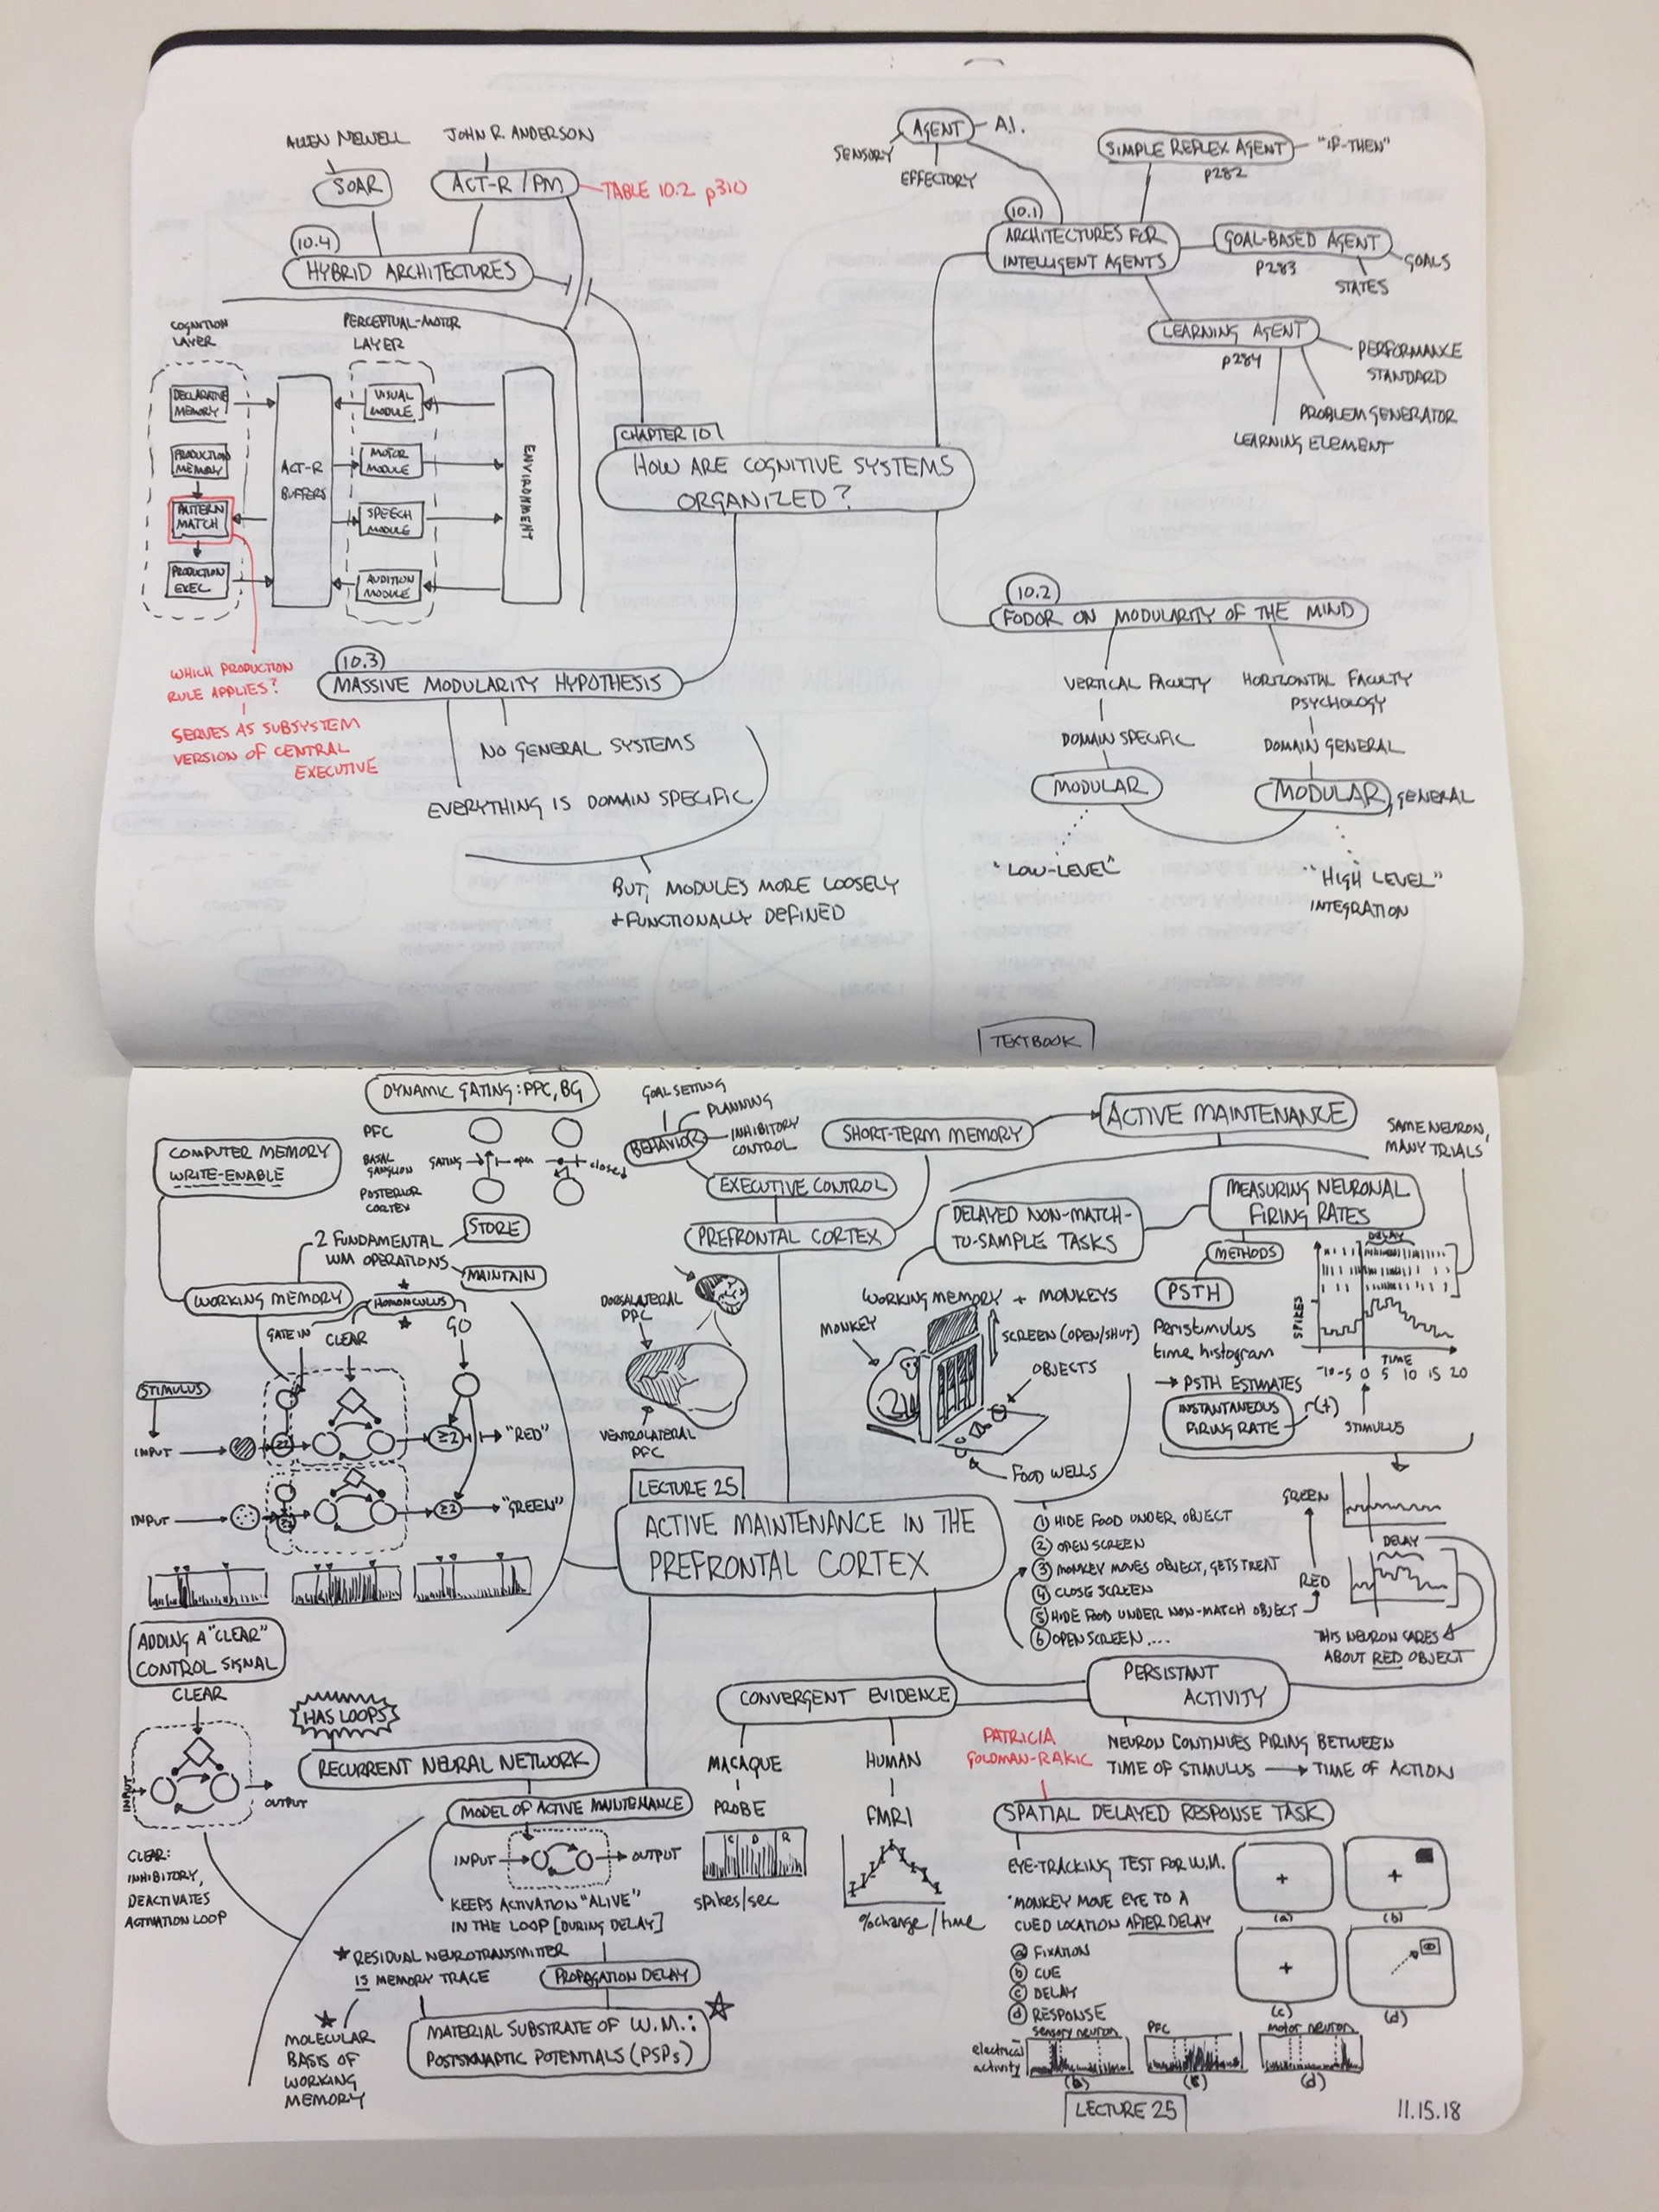 ALLEN NEWELL
JOHN R. ANDERSON
SOAR
ACT-R / PM
TABLE 10.2 p310
10.4
HYBRID ARCHITECTURES
COGNITION
LAYER
PERCEPTUAL-MOTOR
LAYER
DECLARATIVE
MEMORY
PRODUCTION
MEMORY
PATTERN
MATCH
PRODUCTION
EXEC
ACT-R
BUFFERS
VISUAL
MODULE
MOTOR
MODULE
SPEECH
MODULE
AUDITION
MODULE
ENVIRONMENT
WHICH PRODUCTION
RULE APPLIES?
SERVES AS SUBSYSTEM
VERSION OF CENTRAL
EXECUTIVE
CHAPTER 10
HOW ARE COGNITIVE SYSTEMS
ORGANIZED?
AGENT
A.I.
SENSORY
EFFECTORY
SIMPLE REFLEX AGENT
"IF-THEN"
p282
10.1
ARCHITECTURES FOR
INTELLIGENT AGENTS
GOAL-BASED AGENT
p283
GOALS
STATES
LEARNING AGENT
p284
PERFORMANCE
STANDARD
PROBLEM GENERATOR
LEARNING ELEMENT
10.2
FODOR ON MODULARITY OF THE MIND
VERTICAL FACULTY
DOMAIN SPECIFIC
MODULAR
"LOW-LEVEL"
HORIZONTAL FACULTY
PSYCHOLOGY
DOMAIN GENERAL
MODULAR, GENERAL
"HIGH LEVEL"
INTEGRATION
10.3
MASSIVE MODULARITY HYPOTHESIS
NO GENERAL SYSTEMS
EVERYTHING IS DOMAIN SPECIFIC
BUT, MODULES MORE LOOSELY
+ FUNCTIONALLY DEFINED
TEXTBOOK
DYNAMIC GATING: PFC, BG
PFC
BASAL
GANGLION
GATING
open
closed
POSTERIOR
CORTEX
COMPUTER MEMORY
WRITE-ENABLE
2 FUNDAMENTAL
WM OPERATIONS
STORE
MAINTAIN
WORKING MEMORY
HOMONCULUS
GATE IN
CLEAR
GO
STIMULUS
INPUT
≥2
≥2
"RED"
INPUT
≥2
≥2
"GREEN"
ADDING A "CLEAR"
CONTROL SIGNAL
CLEAR
INPUT
OUTPUT
CLEAR:
INHIBITORY,
DEACTIVATES
ACTIVATION LOOP
GOAL SETTING
PLANNING
INHIBITORY
CONTROL
BEHAVIOR
EXECUTIVE CONTROL
PREFRONTAL CORTEX
SHORT-TERM MEMORY
ACTIVE MAINTENANCE
DORSALATERAL
PFC
VENTROLATERAL
PFC
LECTURE 25
ACTIVE MAINTENANCE IN THE
PREFRONTAL CORTEX
DELAYED NON-MATCH-
TO-SAMPLE TASKS
WORKING MEMORY + MONKEYS
MONKEY
SCREEN (OPEN/SHUT)
OBJECTS
FOOD WELLS
① HIDE FOOD UNDER OBJECT
② OPEN SCREEN
③ MONKEY MOVES OBJECT, GETS TREAT
④ CLOSE SCREEN
⑤ HIDE FOOD UNDER NON-MATCH OBJECT
⑥ OPEN SCREEN ....
MEASURING NEURONAL
FIRING RATES
SAME NEURON,
MANY TRIALS
METHODS
PSTH
Peristimulus
time histogram
→ PSTH ESTIMATES
INSTANTANEOUS
FIRING RATE
r(t)
DELAY
SPIKES
TIME
-10 -5 0 5 10 15 20
STIMULUS
GREEN
DELAY
RED
THIS NEURON CARES
ABOUT RED OBJECT
PERSISTANT
ACTIVITY
NEURON CONTINUES FIRING BETWEEN
TIME OF STIMULUS → TIME OF ACTION
CONVERGENT EVIDENCE
MACAQUE
PROBE
C D R
spikes/sec
HUMAN
FMRI
%change/time
HAS LOOPS
RECURRENT NEURAL NETWORK
MODEL OF ACTIVE MAINTENANCE
INPUT
OUTPUT
KEEPS ACTIVATION "ALIVE"
IN THE LOOP [DURING DELAY]
★ RESIDUAL NEUROTRANSMITTER
IS MEMORY TRACE
PROPAGATION DELAY
★
MOLECULAR
BASIS OF
WORKING
MEMORY
MATERIAL SUBSTRATE OF W.M.:
POSTSYNAPTIC POTENTIALS (PSPs)
PATRICIA
GOLDMAN-RAKIC
SPATIAL DELAYED RESPONSE TASK
EYE-TRACKING TEST FOR W.M.
• MONKEY MOVE EYE TO A
CUED LOCATION AFTER DELAY
ⓐ FIXATION
ⓑ CUE
ⓒ DELAY
ⓓ RESPONSE
(a)
(b)
(c)
(d)
sensory neuron
PFC
motor neuron
electrical
activity
(b)
(c)
(d)
LECTURE 25
11.15.18